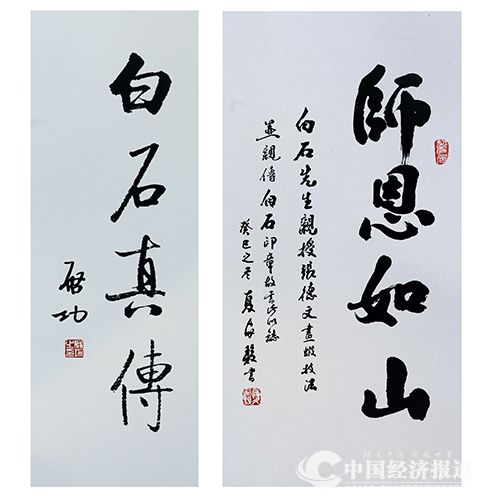 白石真傳
啓功
師恩如山
白石先生親授張德文畫蝦技法
並親傳白石印章故此以誌
癸巳之冬 夏家駿書
中国经济报道